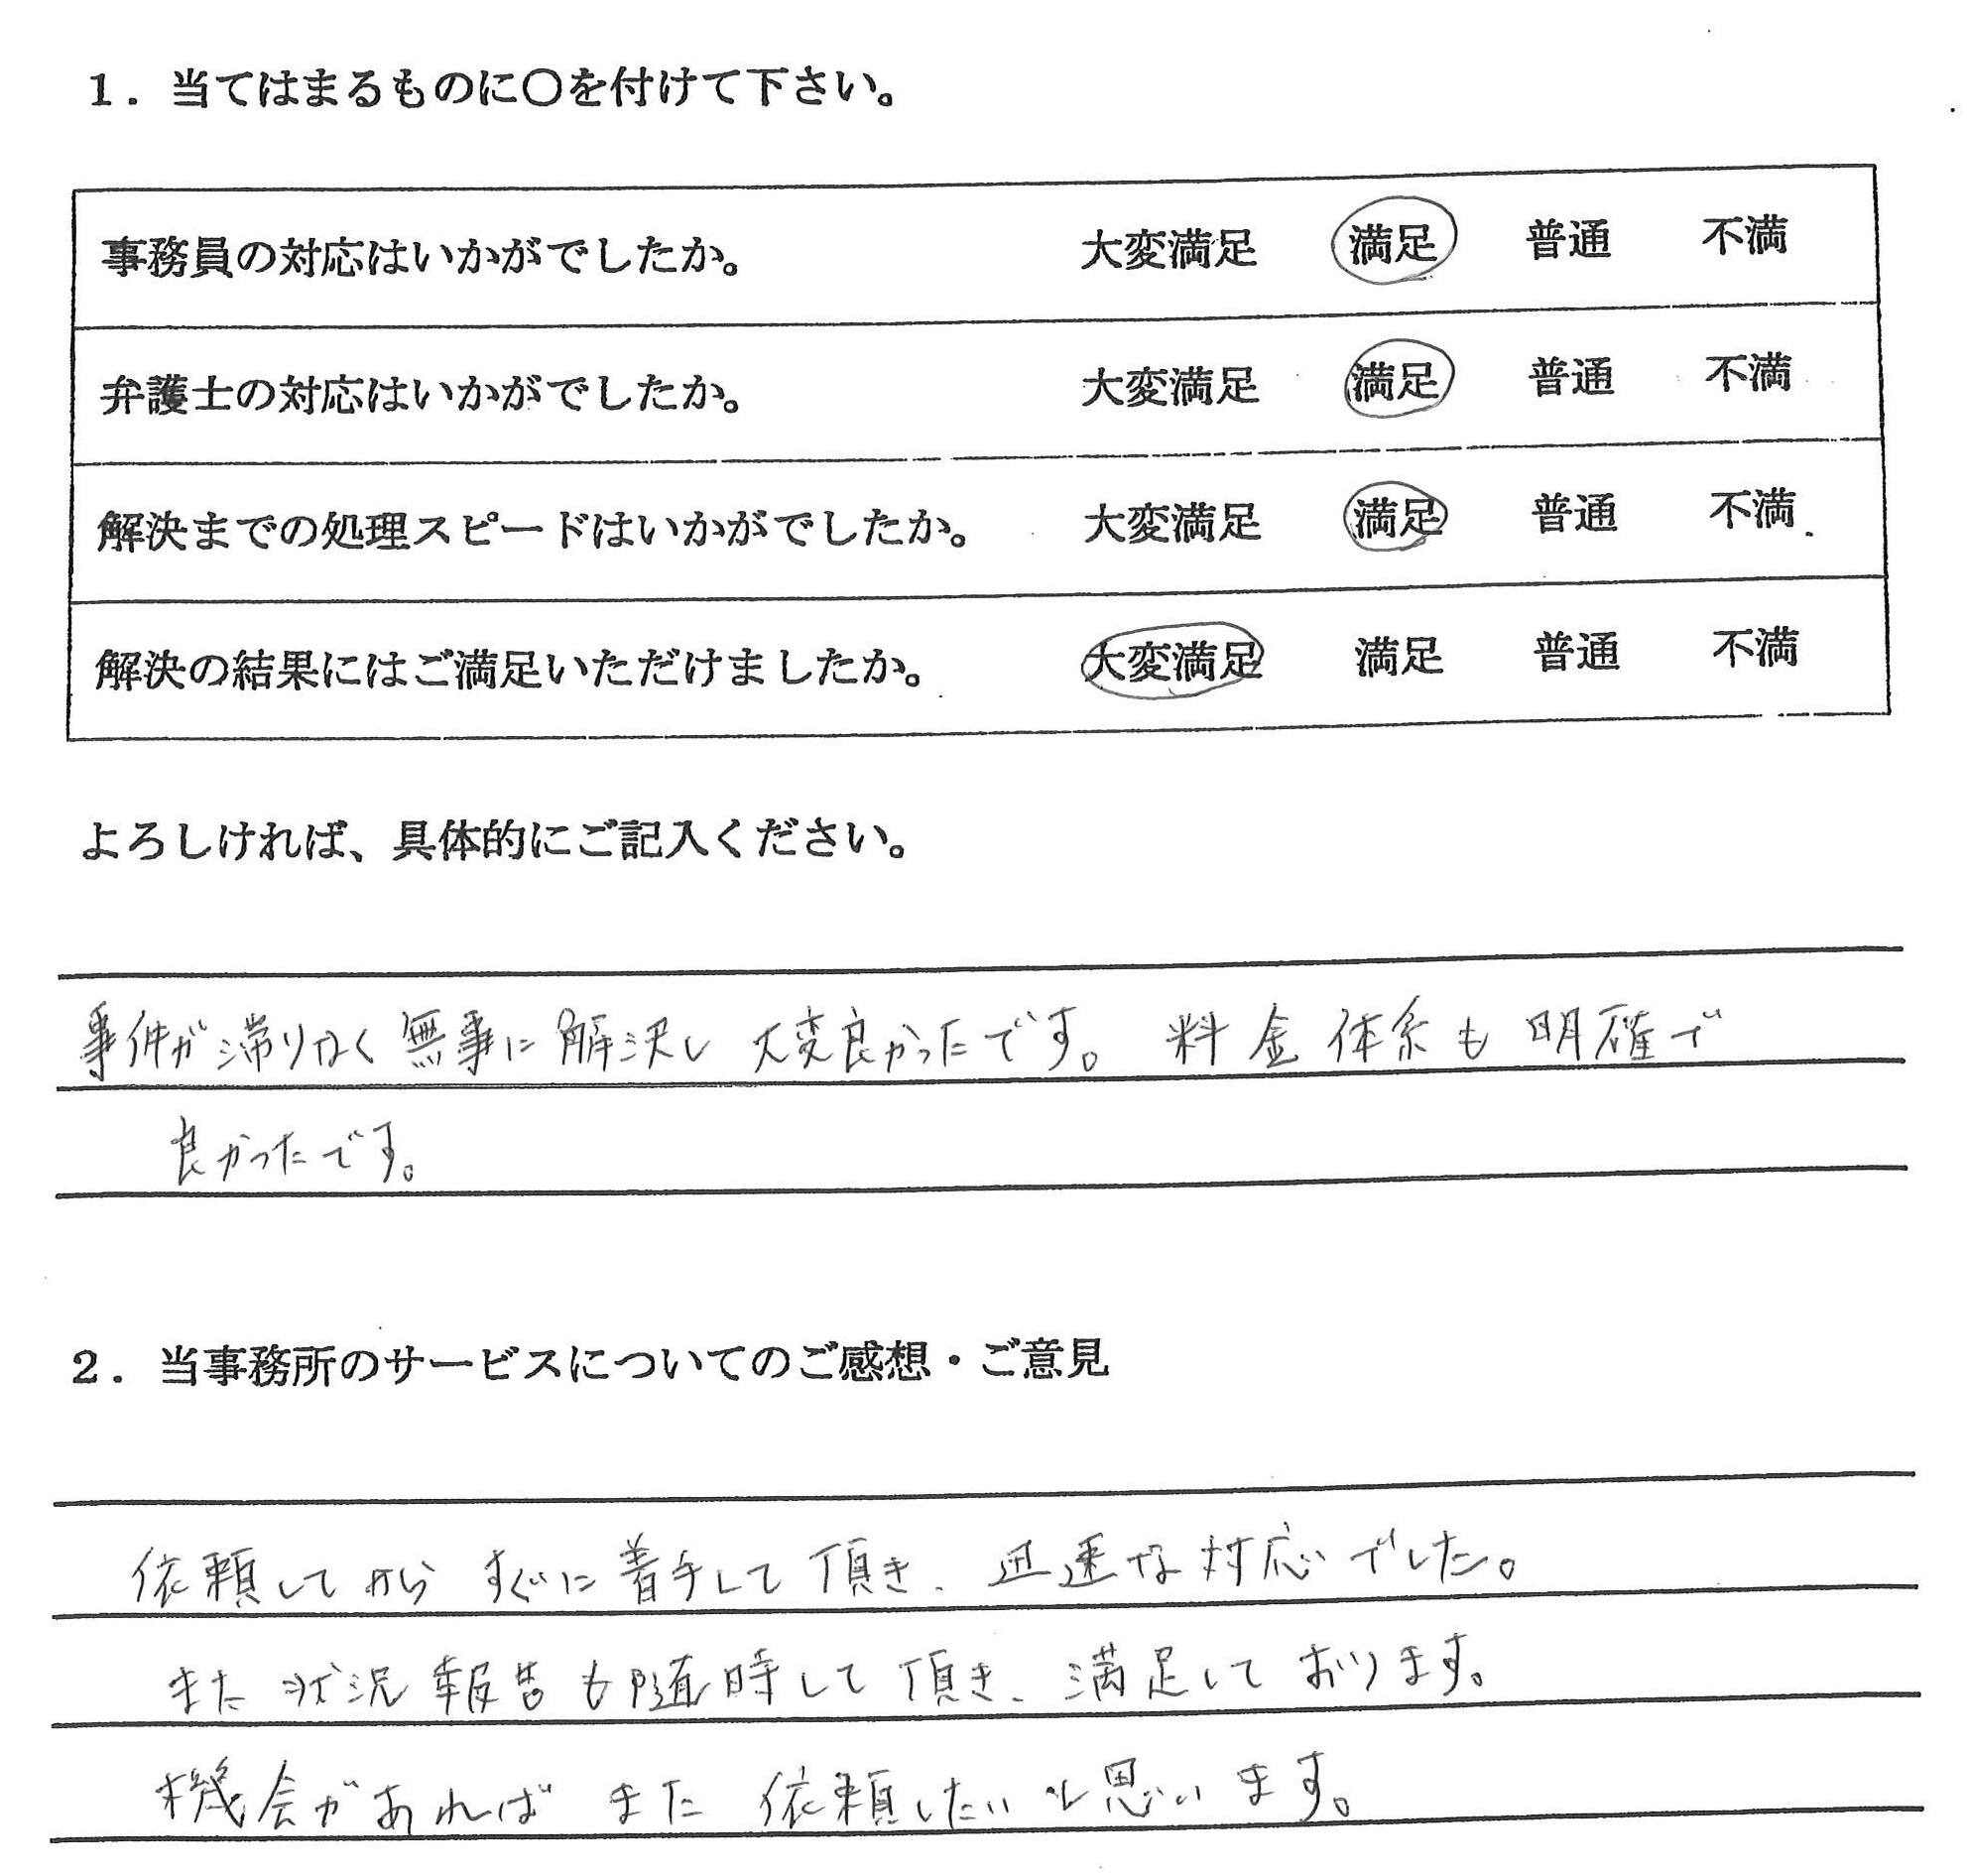 1．当てはまるものに〇を付けて下さい。
事務員の対応はいかがでしたか。 大変満足 満足 普通 不満
弁護士の対応はいかがでしたか。 大変満足 満足 普通 不満
解決までの処理スピードはいかがでしたか。 大変満足 満足 普通 不満
解決の結果にはご満足いただけましたか。 大変満足 満足 普通 不満
よろしければ、具体的にご記入ください。
事件が滞りなく無事に解決し大変良かったです。料金体系も明確で
良かったです。
2．当事務所のサービスについてのご感想・ご意見
依頼してからすぐに着手して頂き、迅速な対応でした。
また状況報告も随時して頂き、満足しております。
機会があればまた依頼したいと思います。